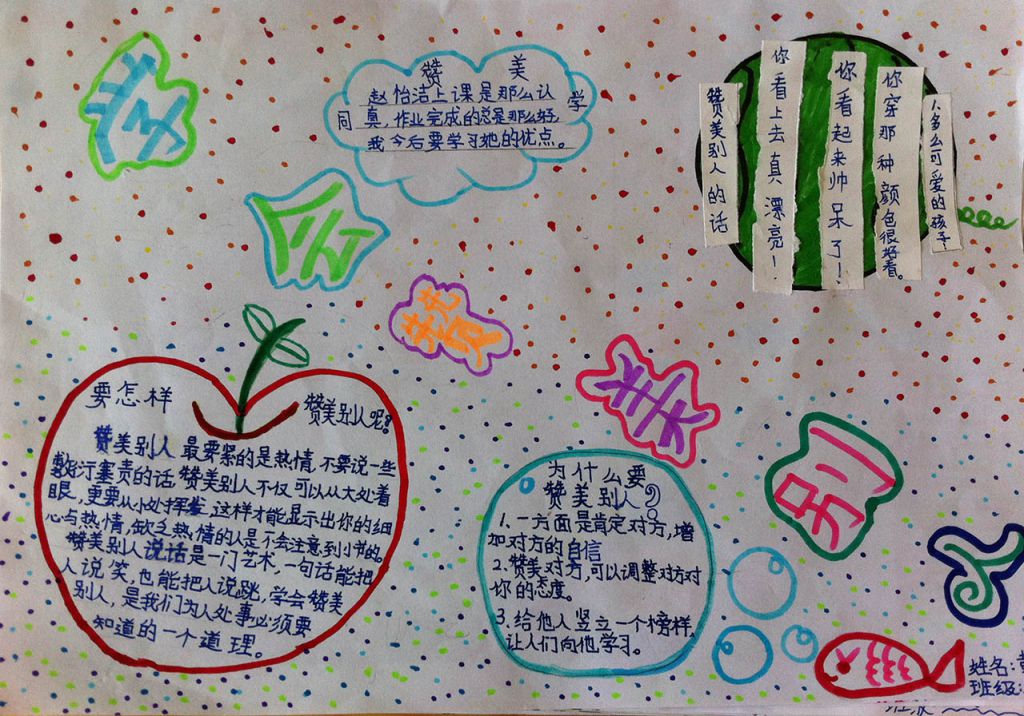 学
会
赞
美
别
人
赞 美
赵怡洁上课是那么认
真,作业完成的总是那么好,
我今后要学习她的优点。
同
学
赞美别人的话
你看上去真漂亮!
你看起来帅呆了!
你穿那种颜色很好看。
多么可爱的孩子!
要怎样
赞美别人呢?
赞美别人最要紧的是热情,不要说一些
敷衍塞责的话,赞美别人不仅可以从大处着
眼,更要从小处挥發,这样才能显示出你的细
心与热情,缺乏热情的人是不会注意到小节的。
赞美别人说话是一门艺术,一句话能把
人说笑,也能把人说跳,学会赞美
别人,是我们为人处事必须要
知道的一个道理。
为什么要
赞美别人?
1.一方面是肯定对方,增
加对方的自信
2.赞美对方,可以调整对方对
你的态度。
3.给他人竖立一个榜样,
让人们向他学习。
姓名:
班级: